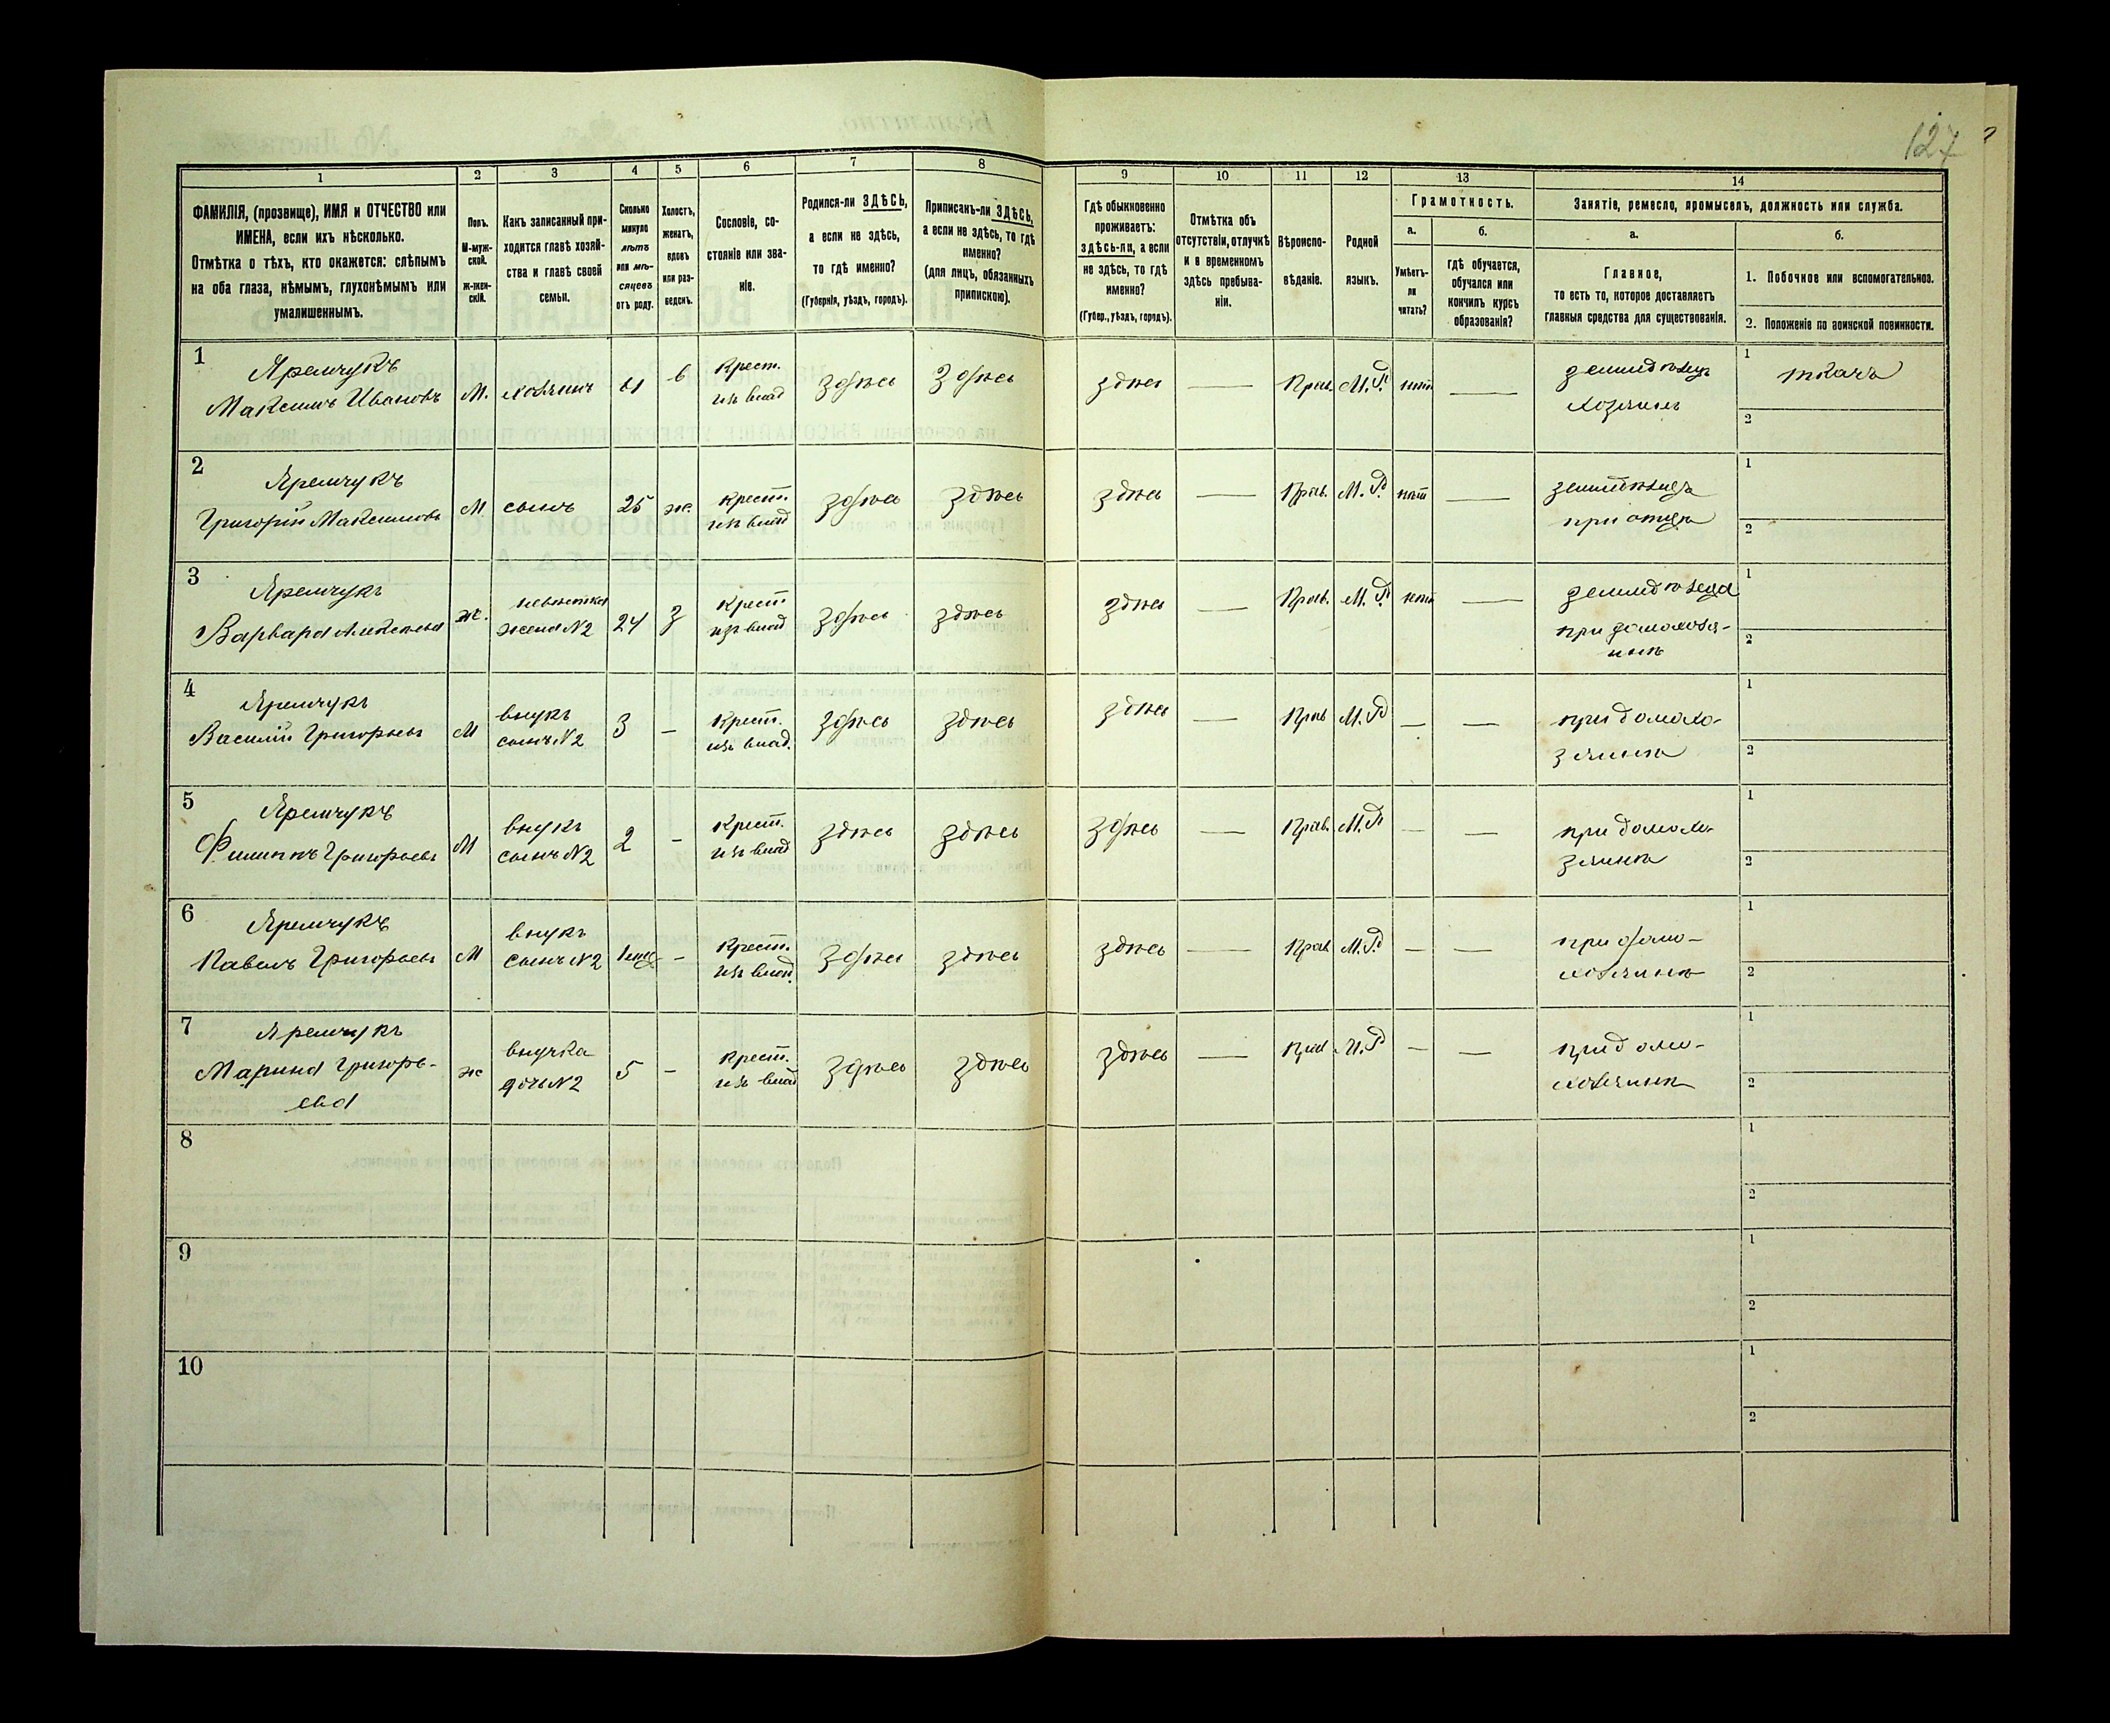 127
1
2
3
4
5
6
7
8
9
10
11
12
13
14
ФАМИЛІЯ, (прозвище), ИМЯ и ОТЧЕСТВО или
ИМЕНА, если ихъ нѣсколько.
Отмѣтка о тѣхъ, кто окажется: слѣпымъ
на оба глаза, нѣмымъ, глухонѣмымъ или
умалишеннымъ.
Полъ.
М-муж-
ской.
Ж-жен-
скій.
Какъ записанный при-
ходится главѣ хозяй-
ства и главѣ своей
семьи.
Сколько
минуло
лѣтъ
или мѣ-
сяцевъ
отъ роду.
Холостъ,
женатъ,
вдовъ
или раз-
веденъ.
Сословіе, со-
стояніе или зва-
ніе.
Родился-ли ЗДѢСЬ,
а если не здѣсь,
то гдѣ именно?
(Губернія, уѣздъ, городъ).
Приписанъ-ли ЗДѢСЬ,
а если не здѣсь, то гдѣ
именно?
(для лицъ, обязанныхъ
припискою).
Гдѣ обыкновенно
проживаетъ:
здѣсь-ли, а если
не здѣсь, то гдѣ
именно?
(Губер., уѣздъ, городъ).
Отмѣтка объ
отсутствіи, отлучкѣ
и о временномъ
здѣсь пребыва-
ніи.
Вѣроиспо-
вѣданіе.
Родной
языкъ.
Грамотность.
а.
Умѣетъ-
ли
читать?
б.
гдѣ обучается,
обучался или
кончилъ курсъ
образованія?
Занятіе, ремесло, промыселъ, должность или служба.
а.
Главное,
то есть то, которое доставляетъ
главныя средства для существованія.
б.
1. Побочное или вспомогательное.
2. Положеніе по воинской повинности.
1
Яремчукъ
Максимъ Ивановъ
М.
хозяинъ
в
Крест.
изъ влад
здѣсь
здѣсь
здѣсь
—
Прав.
М.Р.
нѣтъ
—
земледѣлецъ
хозяинъ
1
ткачъ
2
2
Яремчукъ
Григорій Максимовъ
М
сынъ
25
ж.
крест.
изъ влад
здѣсь
здѣсь
здѣсь
—
Прав.
М.Р.
нѣтъ
—
земледѣлецъ
при отцѣ
1
2
3
Яремчукъ
Варвара
ж.
невѣстка
жена №2
24
З
крест
изъ влад
здѣсь
здѣсь
здѣсь
—
Прав.
М.Р.
нѣтъ
—
при домохозя-
инѣ
1
2
4
Яремчукъ
Василій Григорьевъ
М
внукъ
сынъ №2
3
—
Крест.
изъ влад.
здѣсь
здѣсь
здѣсь
—
Прав
М.Р
—
—
при домохо-
зяинѣ
1
2
5
Яремчукъ
Филиппъ Григорьевъ
М
внукъ
сынъ №2
2
-
Крест.
изъ влад
здѣсь
здѣсь
здѣсь
—
Прав.
М.Р
—
—
при домохо-
зяинѣ
1
2
6
Яремчукъ
Павелъ Григорьевъ
М
внукъ
сынъ №2
-
Крест.
изъ влад.
здѣсь
здѣсь
здѣсь
—
Прав
М.Р
—
—
при домо-
хозяинѣ
1
2
7
Яремчукъ
Марина Григорь-
ева
ж
внучка
дочь №2
5
-
крест.
изъ влад
здѣсь
здѣсь
здѣсь
—
Прав
М.Р
—
—
при домо-
хозяинѣ
1
2
8
1
2
9
1
2
10
1
2